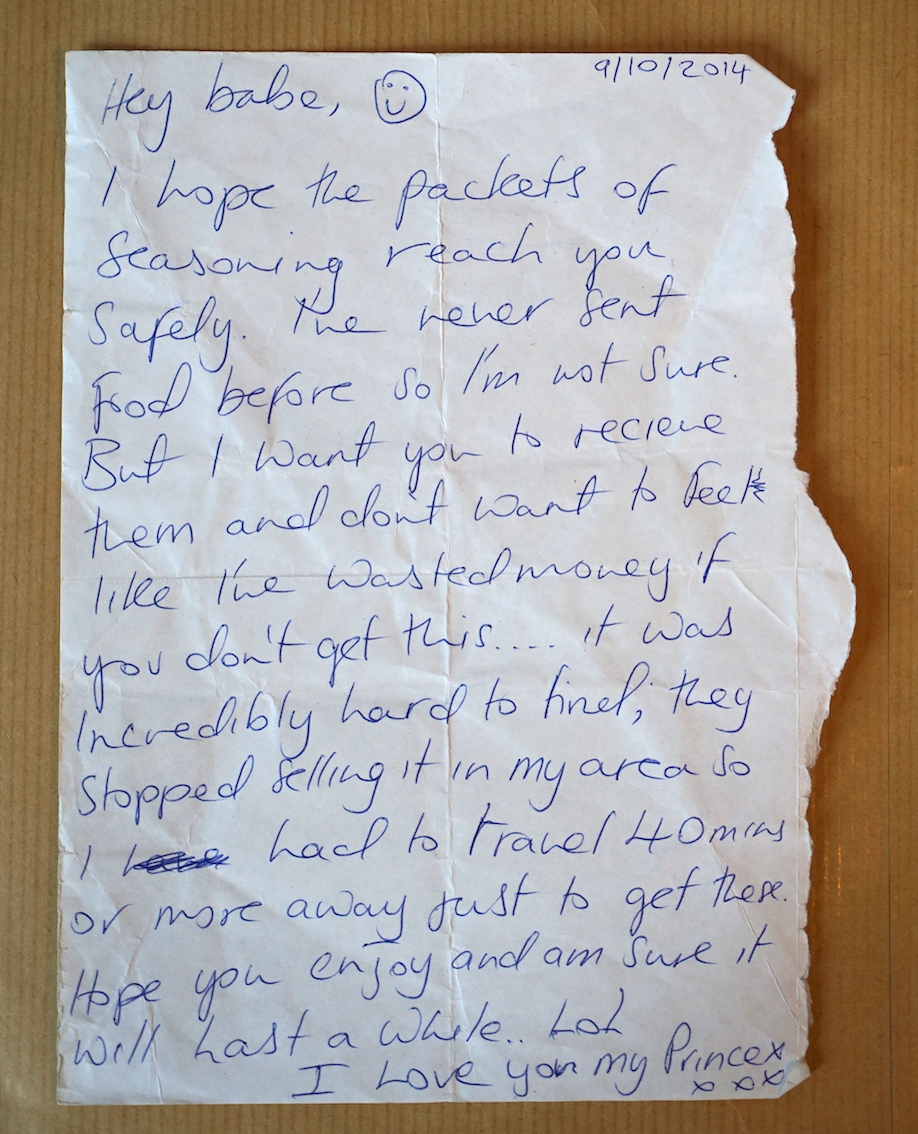 9/10/2014
Hey babe,
I hope the packets of
seasoning reach you
safely. I've never sent
food before so I'm not sure.
But I want you to recieve
them and dont want to feel
like I've wasted money if
you don't get this..... it was
Incredibly hard to find; they
stopped selling it in my area so
I had to travel 40mins
or more away just to get these.
Hope you enjoy and am sure it
will last a while.. Lol
I Love you my Prince x
x x x